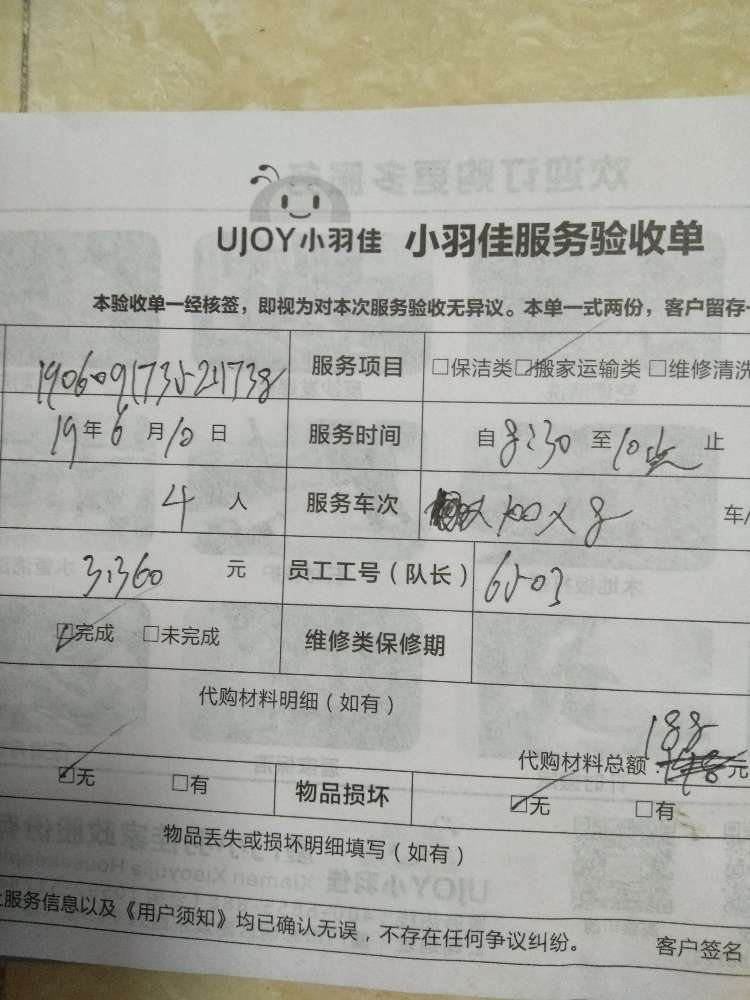 UJOY小羽佳 小羽佳服务验收单
本验收单一经核签，即视为对本次服务验收无异议。本单一式两份，客户留存
服务项目 □保洁类☑搬家运输类 □维修清洗
19年6月10日 服务时间 自8:30至10点止
4人 服务车次 100×8 车/
元 员工工号（队长） 6503
☑完成 □未完成 维修类保修期
代购材料明细（如有）
188
代购材料总额：元
☑无 □有 物品损坏 ☑无 □有
物品丢失或损坏明细填写（如有）
上服务信息以及《用户须知》均已确认无误，不存在任何争议纠纷。 客户签名